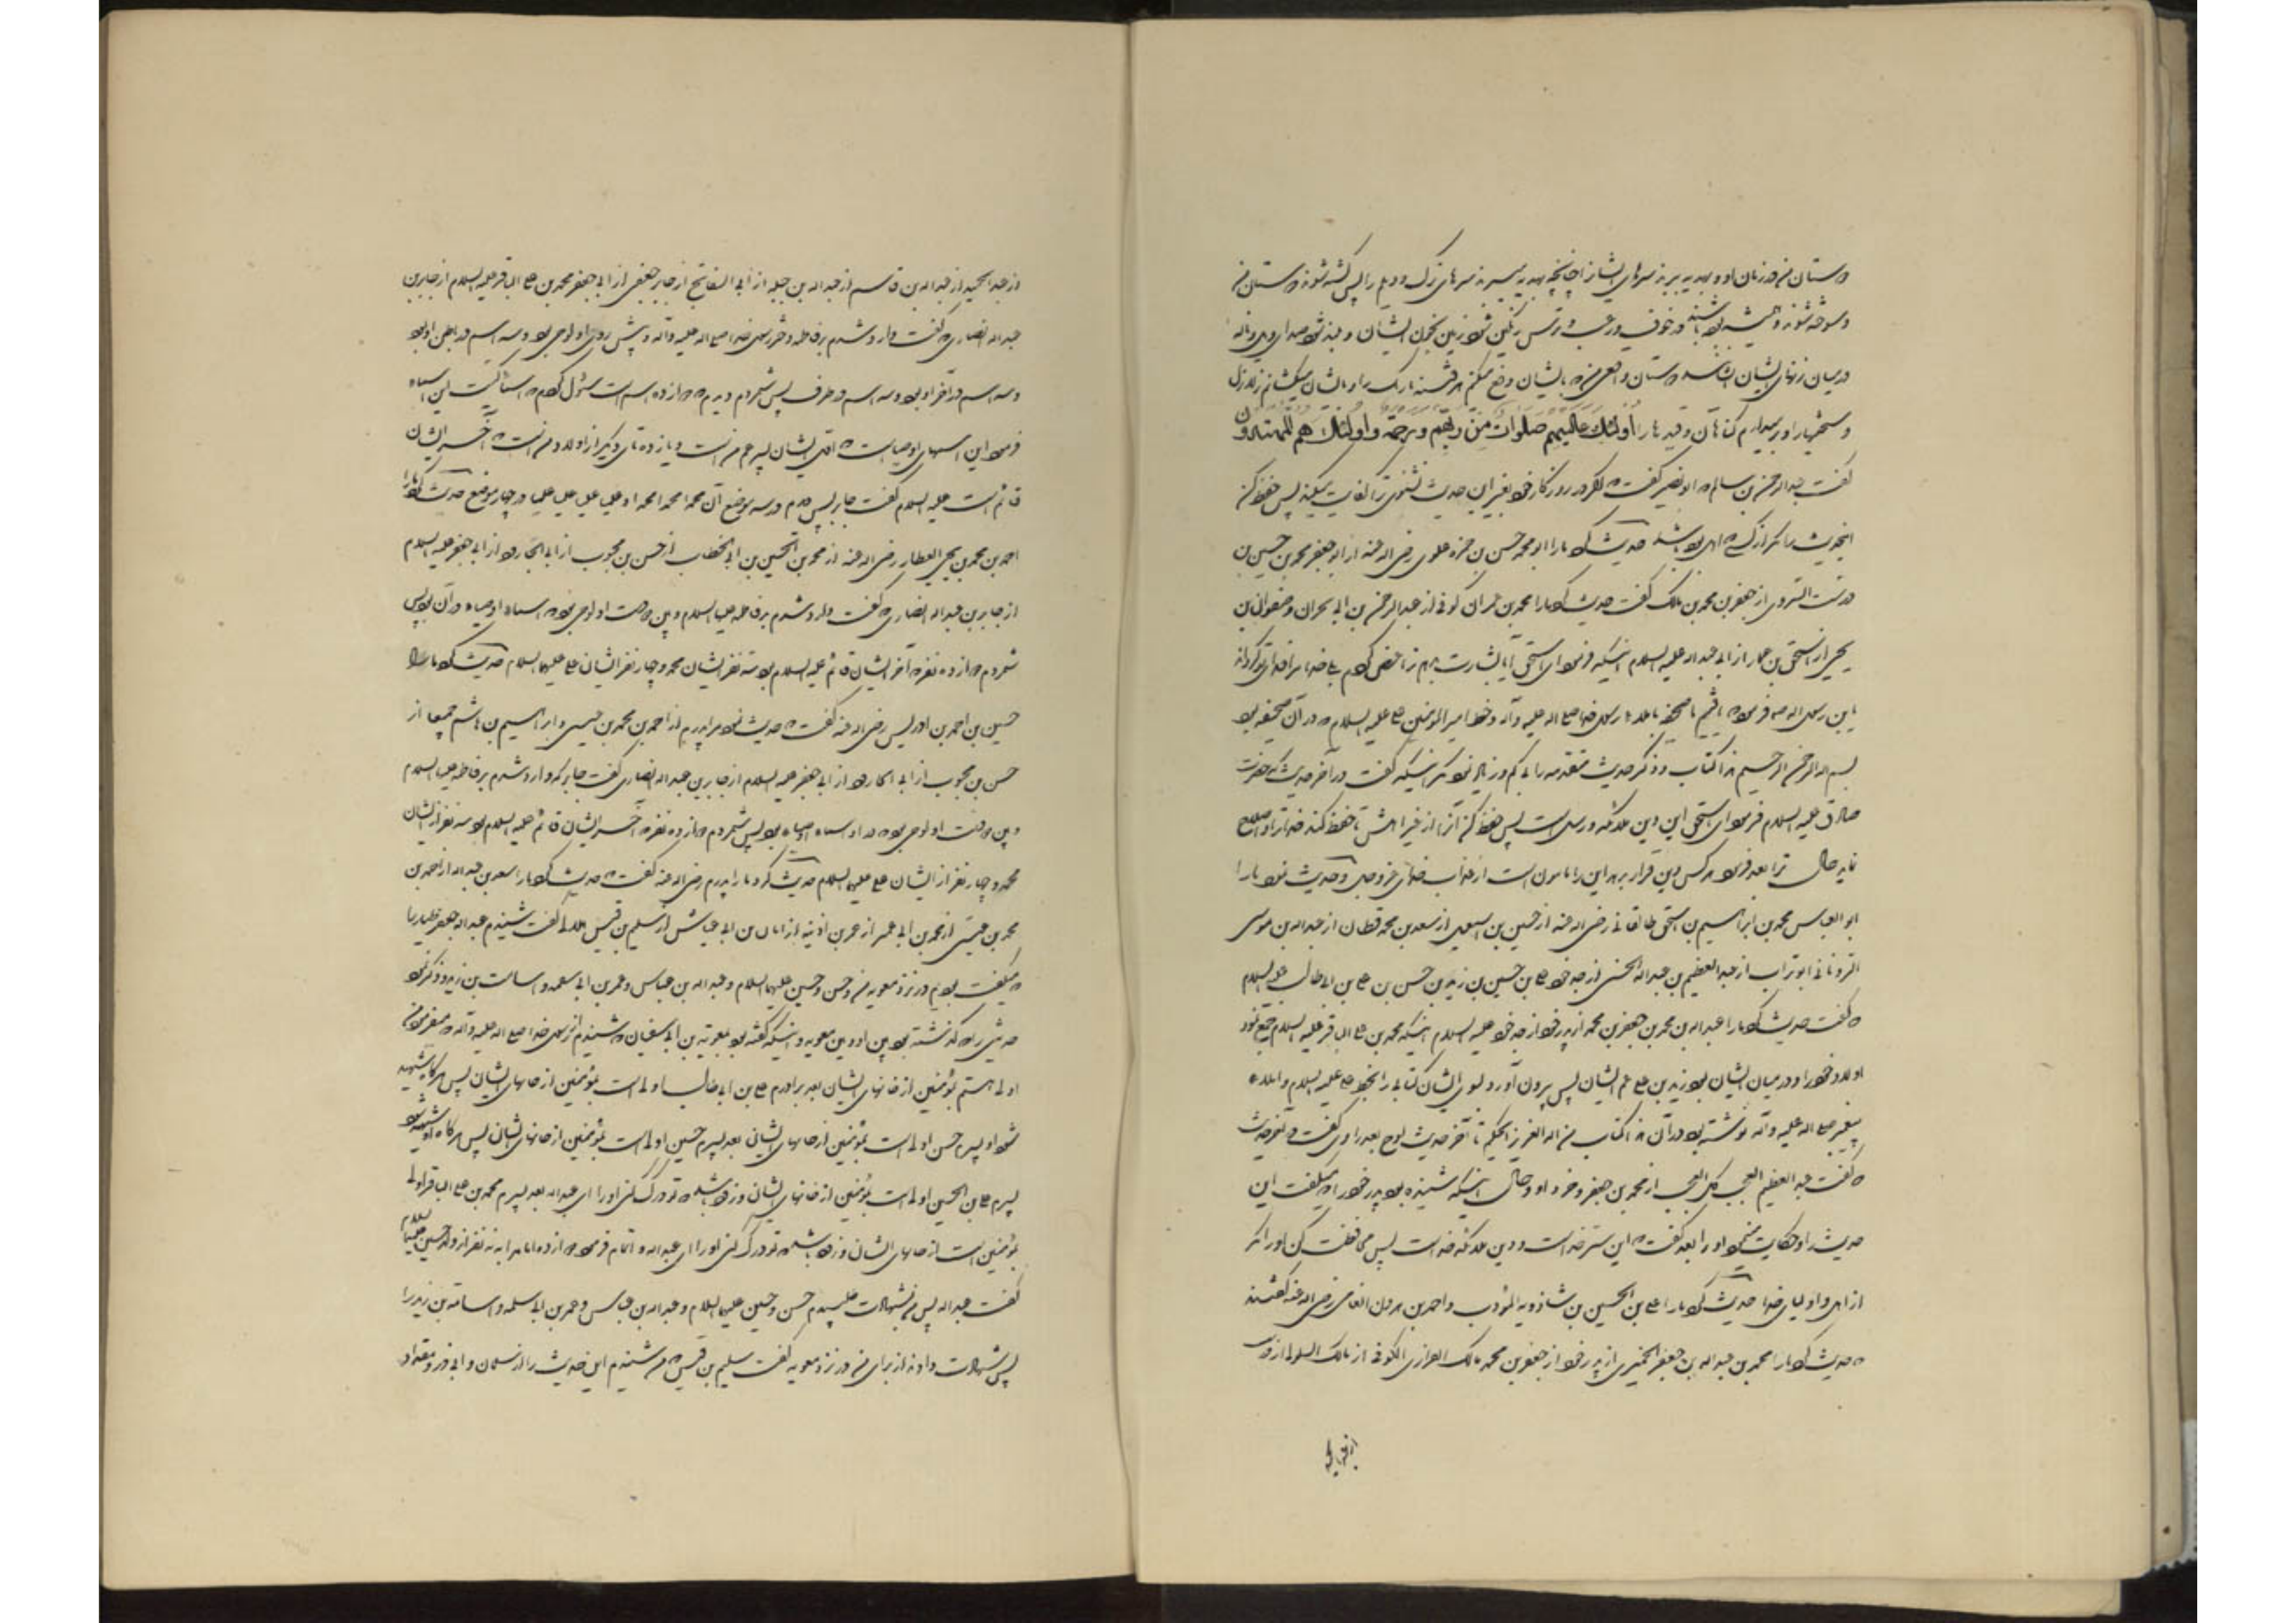 دوستان من در زمان او و هدیه برند سرهای ایشانرا چنانچه هدیه میبرند سرهای ترک و دیلم را پس کشته شوند دوستان من
و سوخته شوند و همیشه بوده باشند در خوف و رعب و ترس رنگین شود زمین بخون ایشان و بلند شود صدای ویل و ناله
درمیان زنهای ایشان ایشانند دوستان واقعی من که بایشان دفع میکنم هر فتنه تاریک را و بایشان میکشانم زلازل
و بر میدارم گناهان و قیدها را أولئك علیهم صلوات من ربهم و رحمة و اولئك هم المهتدون
گفت عبدالرحمن بن سالم که ابوبصیر گفت که اگر در روزگار خود بغیر این حدیث نشنوی ترا کفایت میکند پس حفظ کن
اینحدیث را مگر از کسی که اهل بوده باشد حدیث کرد ما را ابو محمد حسن بن حمزه علوی رضی اله عنه از ابو جعفر محمد بن حسین بن
درست السروی از جعفر بن محمد بن مالک گفت حدیث کرد ما را محمد بن عمران کوفی از عبدالرحمن بن ابی نجران و صفوان بن
یحیی از اسحق بن عمار از ابی عبداله علیه السلام اینکه فرمود ای اسحق آیا بشارت بدهم ترا عرض کردم بلی خدا مرا فدای تو گرداند
یابن رسول اله صه فرمود که یافتیم ما صحیفه باملاء رسول خدا صلی اله علیه و آله و خط امیر المؤمنین علی علیه السلام که در آن صحیفه بود
بسم اله الرحمن الرحیم هذا کتاب و ذکر حدیث متقدمه را بی کم و زیاد نمود مگر اینکه گفت در آخر حدیث که حضرت
صادق علیه السلام فرمود ای اسحق این دین ملائکه و رسل است پس حفظ کن آنرا از غیر اهلش تا حفظ کند خدا ترا و اصلاح
نماید حال ترا بعد فرمود هر کس دین قرار بدهد این را مامون است از عذاب خدای عز و جل و حدیث نمود ما را
ابو العباس محمد بن ابراهیم بن اسحق طالقانی رضی اله عنه از حسین بن اسمعیل از سعد بن محمد قطان از عبداله بن موسی
الرویانی ابو تراب از عبدالعظیم بن عبداله الحسنی از جد خود علی بن حسین بن زید بن حسن بن علی بن ابی طالب علیه السلام
که گفت حدیث کرد ما را عبداله بن محمد بن جعفر بن محمد از پدر خود از جد خود علیه السلام اینکه محمد بن علی الباقر علیه السلام جمع نمود
اولاد خود را و درمیان ایشان بود زید بن علی عم ایشان پس بیرون آورد بسوی ایشان کتابی را بخط علی علیه السلام و املاء
پیغمبر صلی اله علیه و آله نوشته بود در آن هذا کتاب من اله العزیز الحکیم تا آخر حدیث لوح بعد راوی گفت در آخر حدیث
که گفت عبدالعظیم العجب کل العجب از محمد بن جعفر و خروج او و حال اینکه شنیده بود پدر خود را که میگفت این
حدیث را و حکایت مینمود او را بعد گفت که این سر خداست و دین ملائکه خداست پس محافظت کن او را مگر
از اهل و اولیای خدا حدیث کرد ما را علی بن الحسین بن شاذویه المؤدب و احمد بن هرون الفامی رضی اله عنه گفتند
که حدیث کرد ما را محمد بن عبداله بن جعفر الحمیری از پدر خود از جعفر بن محمد مالک الفزاری الکوفی از مالک السلولی از درست
از عبدالحمید از عبداله بن قاسم از عبداله بن جبله از أبی السفاتج از جابر جعفی از ابی جعفر محمد بن علی الباقر علیه السلام از جابر بن
عبداله انصاری که گفت وارد شدم بر فاطمه دختر رسول خدا صلی اله علیه و آله و پیش روی او لوحی بود و سه اسم در باطن او بود
و سه اسم در آخر او بود و سه اسم در طرف پس شمردم دیدم که دوازده اسم است سئول کردم که اسماء کیست این اسماء
فرمود این اسمهای اوصیاست که اول ایشان پسر عم من است و یازده تای دیگر از اولاد من است که آخر ایشان
قائم است علیه السلام گفت جابر پس دیدم در سه موضع آن محمد امحمد امحمد او علیا علی علی علیا در چهار موضع حدیث کرد ما را
احمد بن محمد بن یحیی العطار رضی اله عنه از محمد بن الحسین بن ابی الخطاب از حسن بن محبوب از ابی الجارود از ابی جعفر علیه السلام
از جابر بن عبداله انصاری که گفت وارد شدم بر فاطمه علیها السلام و بین دو دست او لوحی بود که اسماء اوصیاء در آن بود پس
شمردم دوازده نفر که آخر ایشان قائم علیه السلام بود سه نفر ایشان محمد و چهار نفر ایشان علی علیهما السلام حدیث کرد ما را
حسین بن احمد بن ادریس رضی اله عنه گفت که حدیث نمود مرا پدرم از احمد بن محمد بن عیسی و ابراهیم بن هاشم جمیعا از
حسن بن محبوب از ابی الجارود از ابی جعفر علیه السلام از جابر بن عبداله انصاری گفت جابر که وارد شدم بر فاطمه علیها السلام
و بین دو دست او لوحی بود که در او اسماء اوصیاء بود پس شمردم دوازده نفر که آخر ایشان قائم علیه السلام بود سه نفر از ایشان
محمد و چهار نفر از ایشان علی علیهما السلام حدیث کرد ما را پدرم رضی اله عنه گفت که حدیث کرد ما را سعد بن عبداله از احمد بن
محمد بن عیسی از محمد بن ابی عمیر از عمر بن اذینه از ابان بن ابی عیاش از سلیم بن قیس هلالی گفت شنیدم عبداله جعفر طیار را
که میگفت بودیم در نزد معویه من و حسن و حسین علیهما السلام و عبداله بن عباس و عمر بن ابی سلمه و اسامت بن زید و ذکر نمود
حدیثی را که گذشته بود بین او و بین معویه و اینکه گفته بود بمعویة بن ابی سفیان که شنیدم از رسول خدا صلی اله علیه و آله که میفرمود من
اولی هستم بمؤمنین از جانهای ایشان بعد برادرم علی بن ابی طالب اولی است بمؤمنین از جانهای ایشان پس هرگاه شهید
شود او پسرم حسن اولی است بمؤمنین از جانهای ایشان بعد پسرم حسین اولی است بمؤمنین از جانهای ایشان پس هرگاه او شهید شود
پسرم علی بن الحسین اولی است بمؤمنین از جانهای ایشان و زود باشد که تو درک کنی او را ای عبداله بعد پسرم محمد بن علی الباقر اولی
بمؤمنین است از جانهای ایشان و زود باشد که تو درک کنی او را ای عبداله و اتمام فرمود دوازده امام را به نه نفر از ولد حسین علیهما السلام
گفت عبداله پس من بشهادت طلبیدم حسن و حسین علیهما السلام و عبداله بن عباس و عمر بن ابی سلمه و اسامة بن زید را
پس شهادت دادند از برای من در نزد معویه گفت سلیم بن قیس که من شنیدم این حدیث را از سلمان و ابی ذر و مقداد